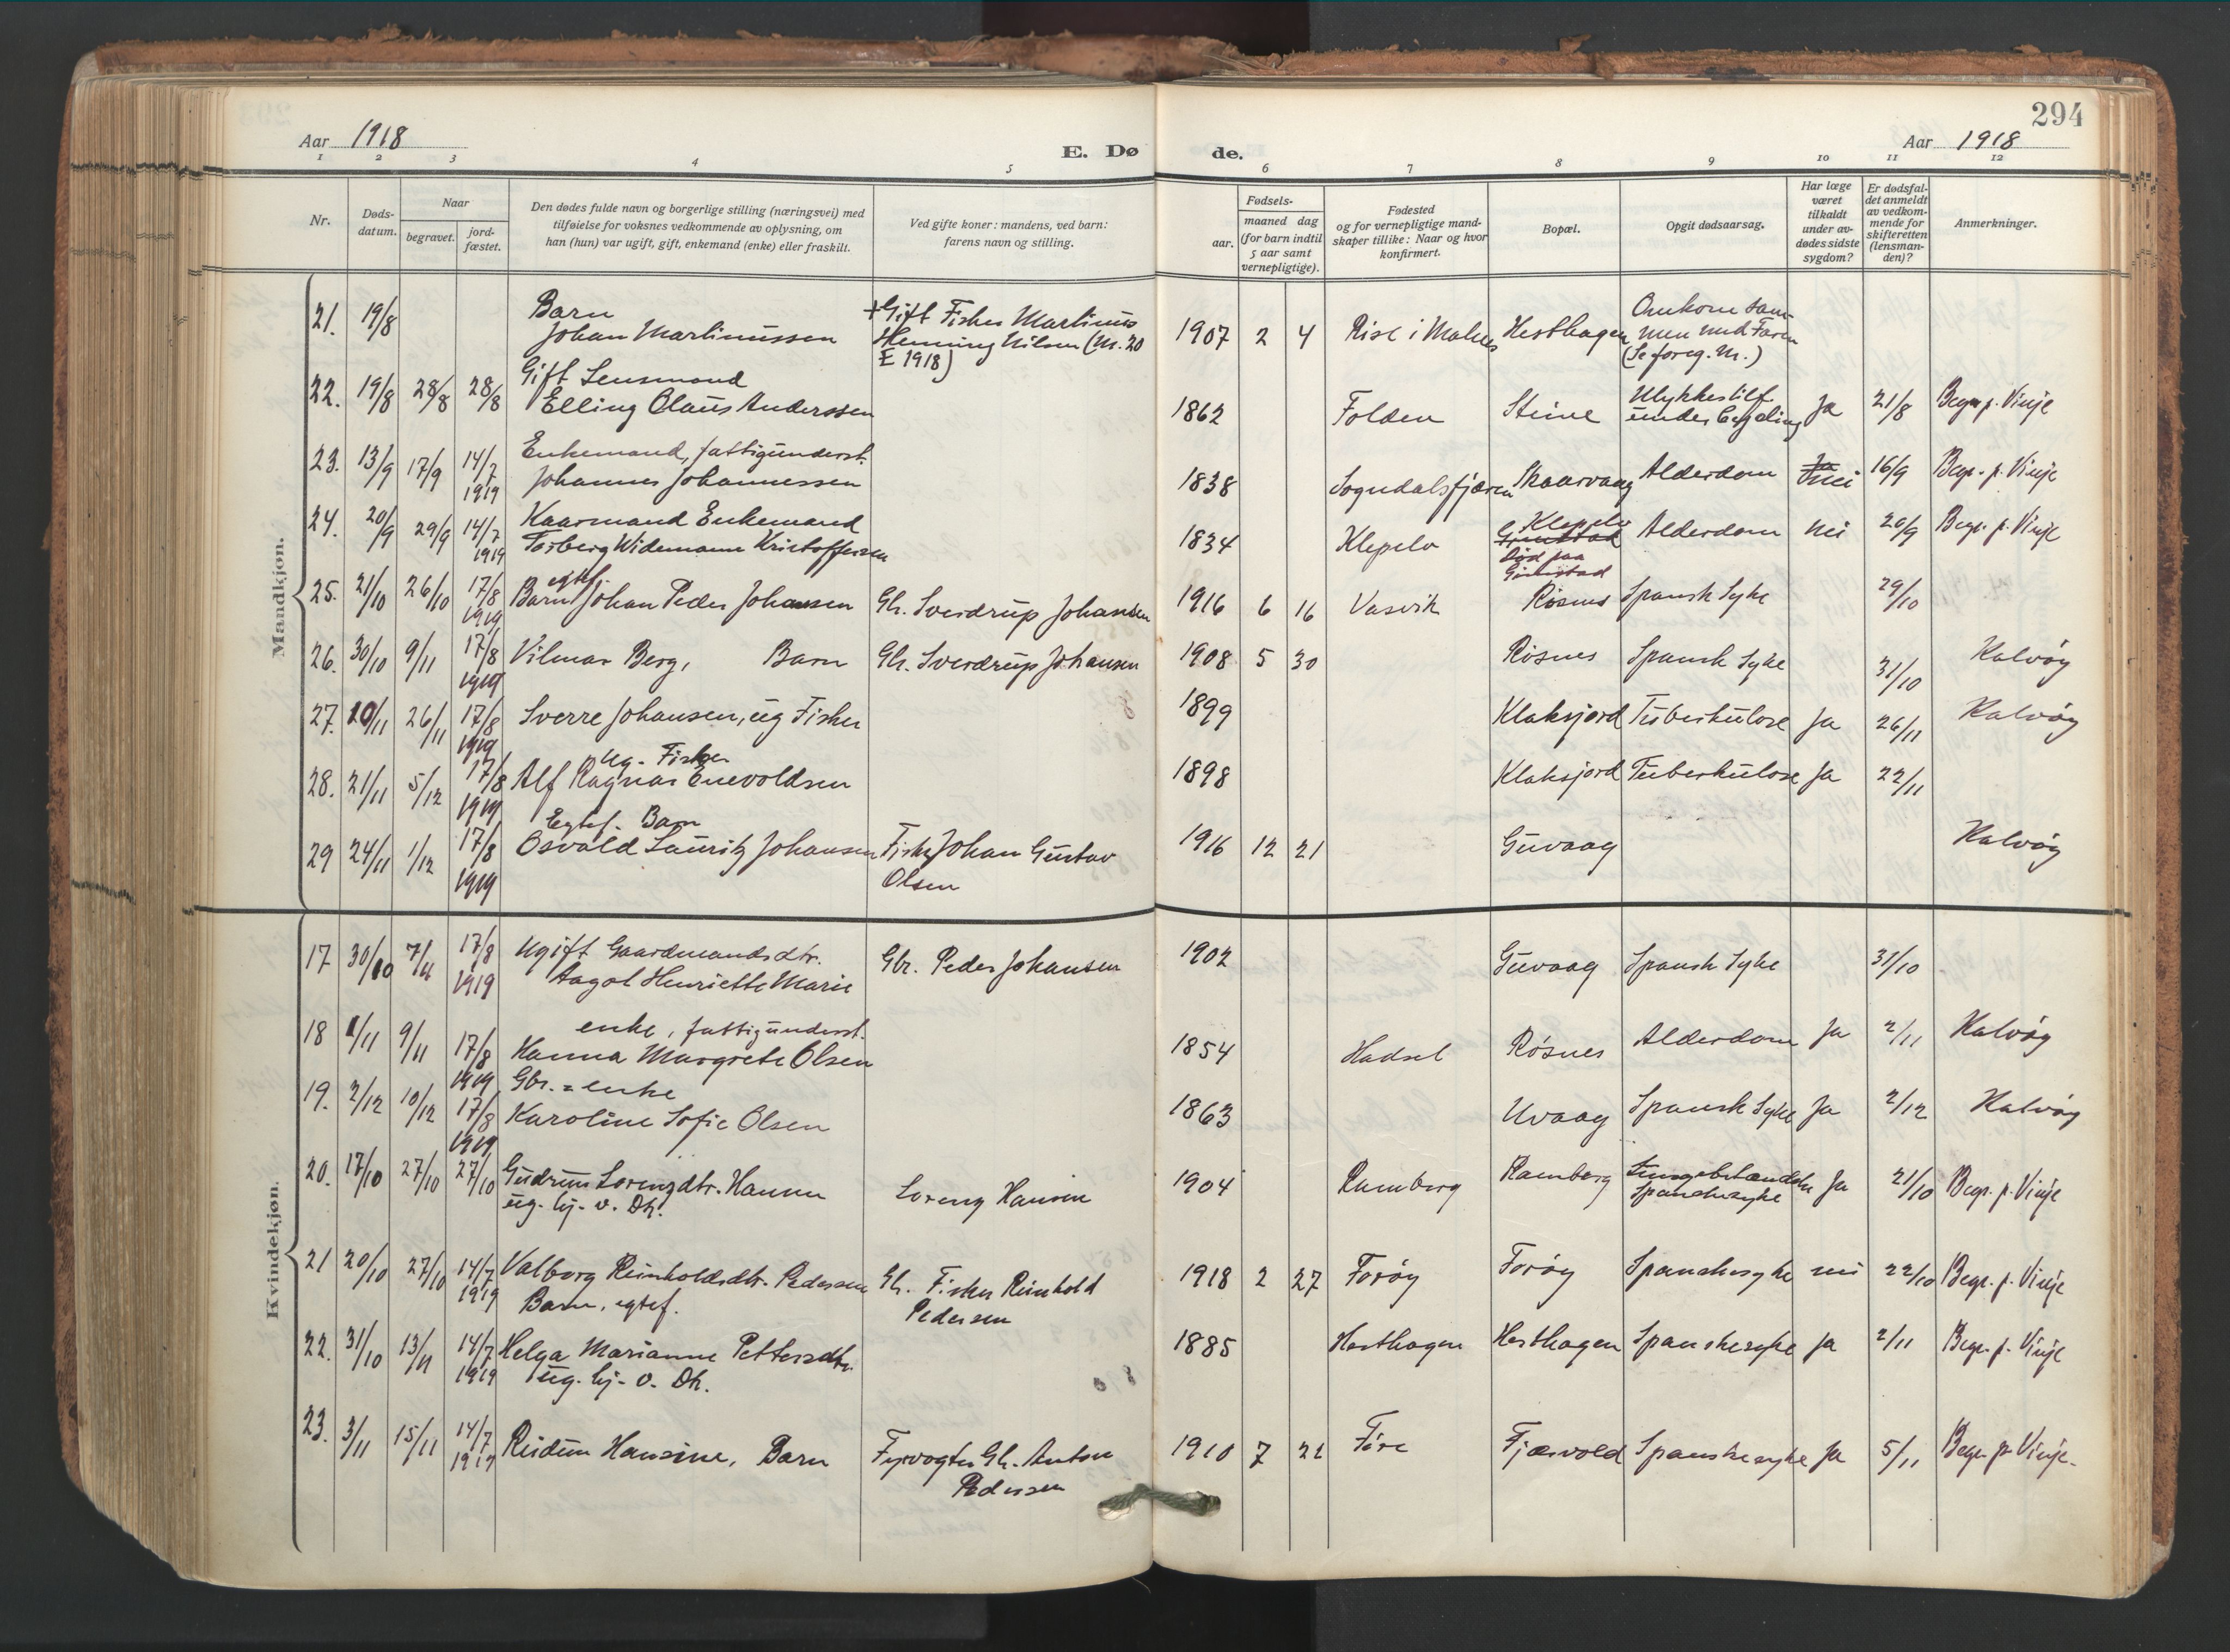 294
Aar 1918
E. Dø
de.
Aar 1918
1 2 3 4 5 6 7 8 9 10 11 12
Nr.
Døds-
datum.
Naar
begravet.
jord-
fæstet.
Den dødes fulde navn og borgerlige stilling (næringsvei) med
tilføielse for voksnes vedkommende av oplysning, om
han (hun) var ugift, gift, enkemand (enke) eller fraskilt.
Ved gifte koner: mandens, ved barn:
farens navn og stilling.
Fødsels-
aar.
maaned dag
(for barn indtil
5 aar samt
vernepligtige).
Fødested
og for vernepligtige mand-
skaper tillike: Naar og hvor
konfirmert.
Bopæl.
Opgit dødsaarsag.
Har læge
været
tilkaldt
under av-
dødes sidste
sygdom?
Er dødsfal-
det anmeldt
av vedkom-
mende for
skifteretten
(lensman-
den)?
Anmerkninger.
Mandkjøn.
21. 19/8 Barn
Johan Martinussen
+Gift Fisker Martinus
Henning Nilsen (Nr. 20
E 1918)
1907 2 4 Rise i Malnes Hesthagen Omkom sam-
men med Faren
(Se foreg. Nr.)
22. 19/8 28/8 28/8 Gift Lensmand
Elling Olaus Anderssen
1862 Folden Steine Ulykkestilf.
under Ja 21/8 Begr. p. Vinje
23. 13/9 17/9 14/7 1919 Enkemand, fattigunderst.
Johannes Johannessen
1838 Sogndalsfjæren Skaarvaag Alderdom Ja nei 16/9 Begr. p. Vinje
24. 20/9 29/9 14/7 1919 Kaarmand Enkemand
Torberg Widemann Kristoffersen
1834 Klepelv Klepelv
Grimstad
Død paa
Grimstad
Alderdom nei 20/9 Begr. p. Vinje
25. 21/10 26/10 17/8 1919 egtef.
Barn Johan Peder Johansen Gbr. Sverdrup Johansen
1916 6 16 Vasvik Røsnes Spansk Syke 29/10
26. 30/10 9/11 17/8 1919 Vilmar Berg, Barn Gbr. Sverdrup Johansen
1908 5 30 Røsnes Spansk Syke 31/10 Kalvøy
27. 20/11 26/11 17/8 1919 Sverre Johansen, ug Fisker
1899 Klaksjord Tuberkulose Ja 26/11 Kalvøy
28. 21/11 5/12 17/8 1919 ug. Fisker
Alf Ragnar Enevoldsen
1898 Klaksjord Tuberkulose Ja 22/11
29 24/11 1/12 17/8 1919 Egtef. Barn
Osvald Lauritz Johansen Fisker Johan Gustav
Olsen
1916 12 21 Guvaag Kalvøy
Kvindekjøn.
17 30/10 7/11 17/8 1919 Ugift Gaardmandsdtr.
Aagot Henriette Marie Gbr. Peder Johansen
1902 Guvaag Spansk Syke 31/10
18 1/11 9/11 17/8 1919 enke, fattigunderst.
Hanna Margrete Olsen
1854 Hadsel Røsnes Alderdom Ja 2/11 Kalvøy
19. 2/12 10/12 17/8 1919 Gbr. = enke
Karoline Sofie Olsen
1863 Uvaag Spansk Syke Ja 2/12 Kalvøy
20. 17/10 27/10 27/10 Gudrun Lorenzdtr. Hansen
ug. hj. v. Dtr. Lorenz Hansen
1904 Ramberg Ramberg Lungebetændelse
Spanskesyke Ja 21/10 Begr. p. Vinje
21 20/10 27/10 14/7 1919 Valborg Reinholdsdtr. Pedersen
Barn, egtef. Gbr. Fisker Reinhold
Pedersen
1918 2 27 Forøy Forøy Spanskesyke nei 22/10 Begr. p. Vinje
22. 31/10 13/11 14/7 1919 Helga Marianne Pettersdtr.
ug. hj. v. Dtr.
1885 Hesthagen Hesthagen Spanskesyke Ja 2/11 Begr. p. Vinje
23. 3/11 15/11 14/7 1919 Reidun Hansine, Barn Fyrvogter Gbr. Anton
Pedersen
1910 7 21 Føre Fjærvold Spanskesyke Ja 5/11 Begr. p. Vinje.